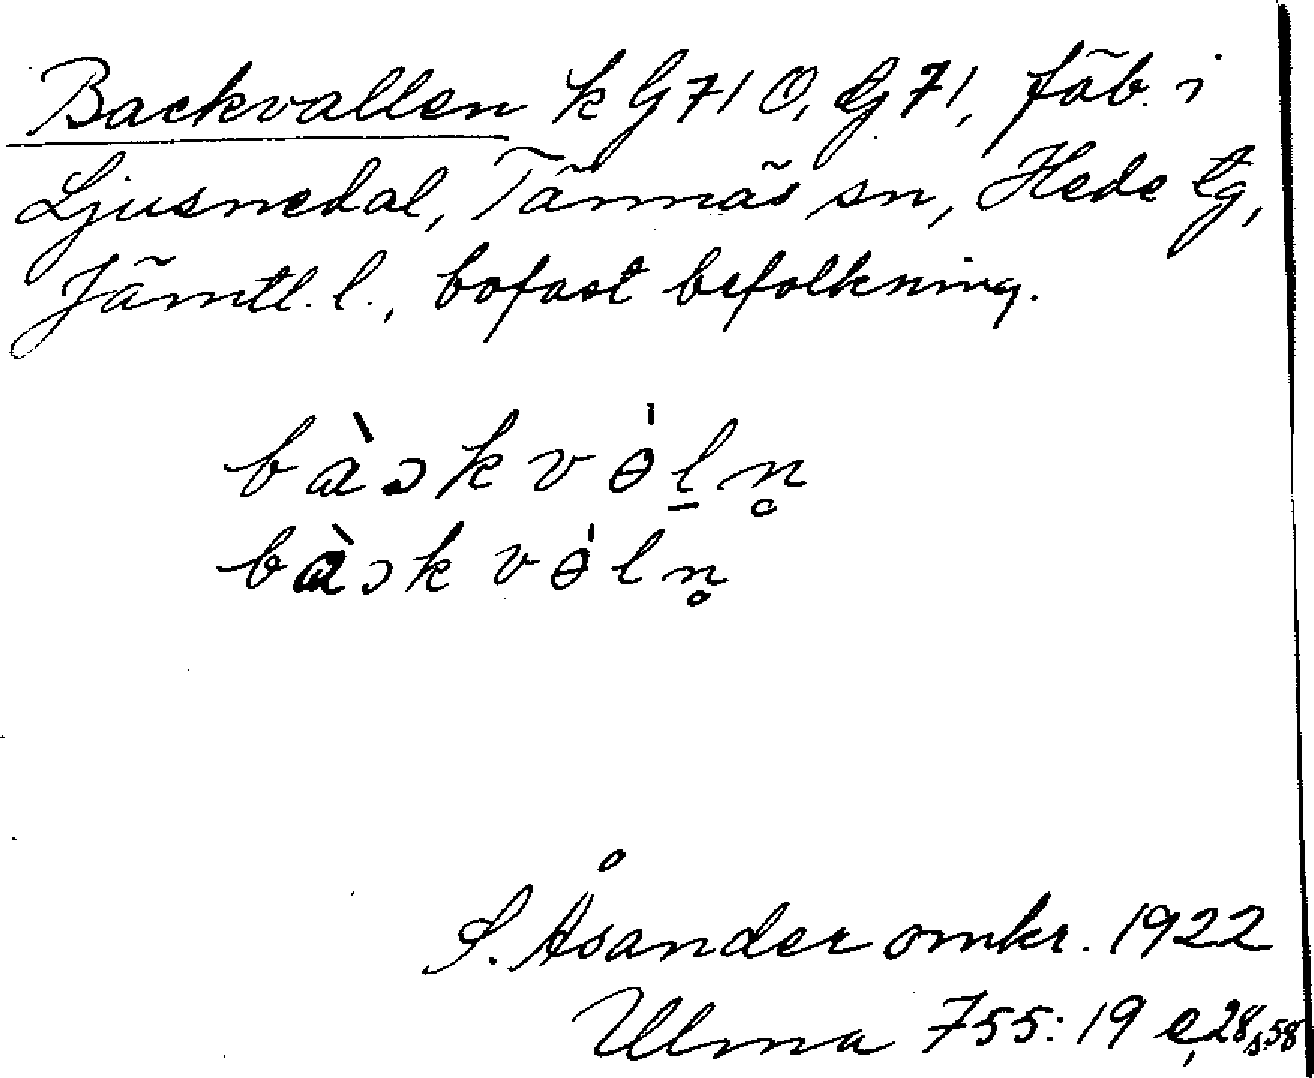 Backvallen k G 71 O, G 71, fäb. i
Ljusnedal, Tännäs sn, Hede tg,
Jämtl. l., bofast befolkning.
bàɔkvɵ̀l̠n̥
bàɔkvɵ̀ln̥
S. Åsander omkr. 1922
Ulma 755: 19 e, 28, s. 58